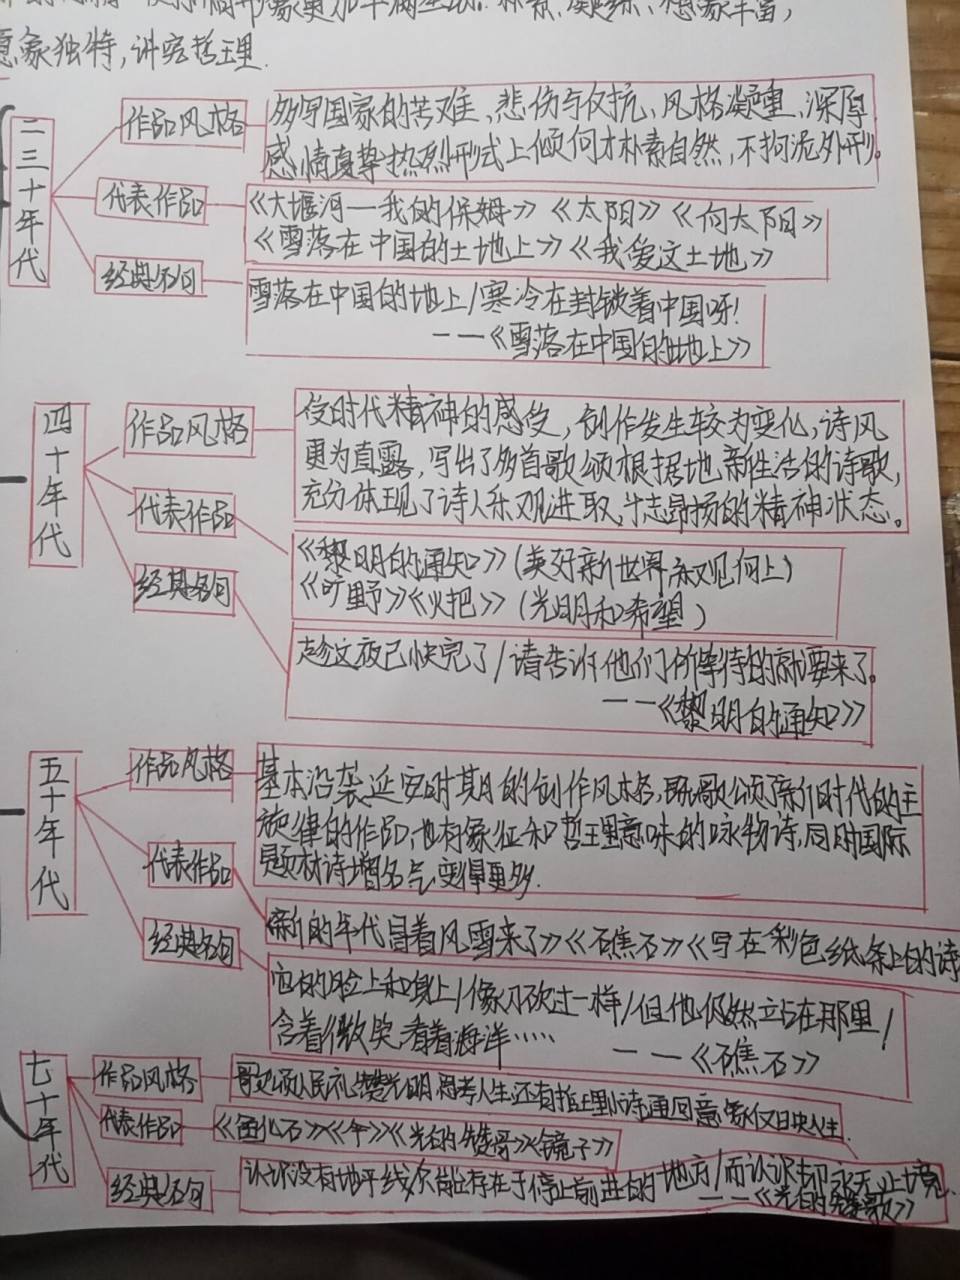 更加丰满生动。朴素、凝练、想象丰富，
意象独特，讲究哲理.
二三十年代
作品风格
多写国家的苦难、悲伤与反抗、风格凝重、深厚
感情真挚热烈形式上倾向于朴素自然，不拘泥外形。
代表作品
《大堰河一我的保姆》《太阳》《向太阳》
《雪落在中国的土地上》《我爱这土地》
经典名句
雪落在中国的地上/寒冷在封锁着中国呀!
——《雪落在中国的地上》
四十年代
作品风格
受时代精神的感受，创作发生较为变化，诗风
更为直露，写出了多首歌颂根据地新生活的诗歌，
充分体现了诗人乐观进取，斗志昂扬的精神状态。
代表作品
《黎明的通知》(美好新世界，积极向上)
《旷野》《火把》(光明和希望)
经典名句
趁这夜已快完了/请告诉他们所等待的就要来了。
——《黎明的通知》
五十年代
作品风格
基本沿袭延安时期的创作风格，既歌颂新旧时代的主
旋律的作品，也有象征和哲理意味的咏物诗，同时国际
题材诗增名气变得更多.
代表作品
《新的年代冒着风雪来了》《礁石》《写在彩色纸条上的诗
经典名句
它的脸上和身上/像刀砍过一样/但他仍然立站在那里/
含着微笑，看着海洋……
——《礁石》
七十年代
作品风格
歌颂人民礼赞光明思考人生还有哲理小诗通回意象仅日映人生.
代表作品
《鱼化石》《伞》《光的赞歌》《镜子》
经典名句
认识没有地平线/只存在于停止前进的地方/而认识却永无止境.
——《光的赞歌》